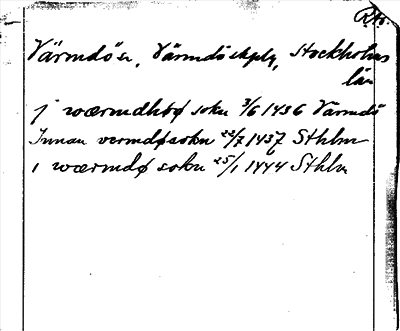 RAp.
Värmdö sn, Värmdö skplg, Stockholms
län
j wærmdhöø sokn 3/6 1436 Värmdö
Innan vermdøsokn 22/7 1437 Sthlm
i wærmdø sokn 25/1 1444 Sthlm